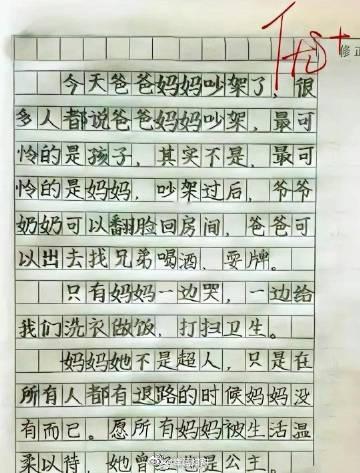 修正
今天爸爸妈妈吵架了，很
多人都说爸爸妈妈吵架，最可
怜的是孩子，其实不是，最可
怜的是妈妈，吵架过后，爷爷
奶奶可以翻脸回房间，爸爸可
以出去找兄弟喝酒、耍牌。
只有妈妈一边哭，一边给
我们洗衣做饭，打扫卫生。
妈妈她不是超人，只是在
所有人都有退路的时候妈妈没
有而已。愿所有妈妈被生活温
柔以待，她曾经也是公主。